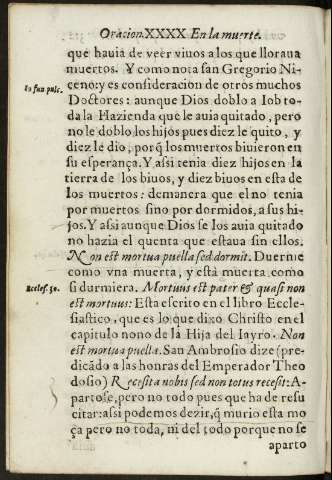 Oracion. XXXX. En la muerte.
que hauia de veer viuos a los que lloraua
muertos. Y como nota san Gregorio Ni-
ceno: y es consideracion de otros muchos
Doctores: aunque Dios doblo a Iob to-
da la Hazienda que le auia quitado, pero
no le doblo los hijos pues diez le quito, y
diez le dio, porq̃ los muertos biuieron en
su esperança. Y assi tenia diez hijos en la
tierra de los biuos, y diez biuos en esta de
los muertos: demanera que el no tenia
por muertos sino por dormidos, a sus hi-
jos. Y assi aunque Dios se los auia quitado
no hazia el quenta que estaua sin ellos.
Non est mortua puella sed dormit. Duerme
como vna muerta, y està muerta como
Eccles. 30.
si durmiera. Mortuus est pater & quasi non
est mortuus: Esta escrito en el libro Eccle-
siastico, que es lo que dixo Christo en el
capitulo nono de la Hija del Iayro. Non
est mortua puella. San Ambrosio dize (pre-
dicãdo a las honras del Emperador Theo
dosio) Recesit a nobis sed non totus recesit: A-
partose, pero no todo pues que ha de resu
citar: assi podemos dezir, q̃ murio esta mo
ça pero no toda, ni del todo porque no se
aparto